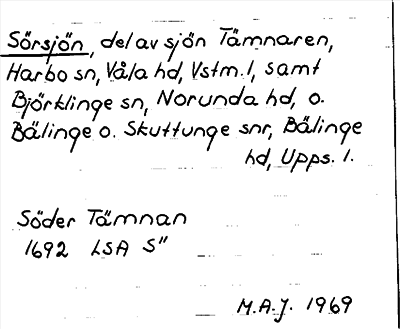 Sörsjön, del av sjön Tämnaren,
Harbo sn, Våla hd, Vstm. l, samt
Björklinge sn, Norunda hd, o.
Bälinge o. Skuttunge snr, Bälinge
hd, Upps. l.
Söder Tämnan
1692 LSA S"
M.A.J. 1969